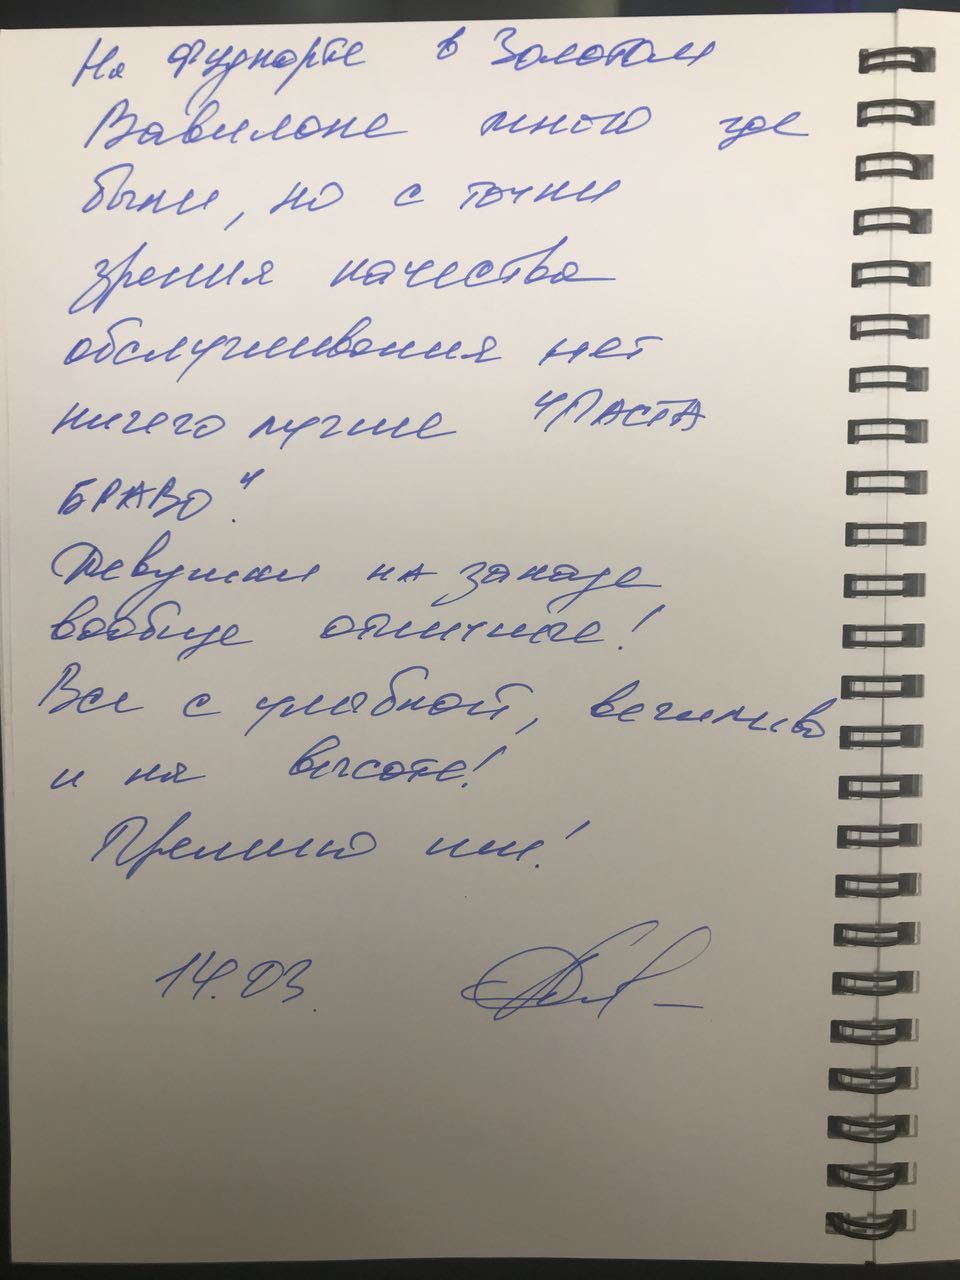 На фудкорте в Золотом
Вавилоне много где
были, но с точки
зрения качества
обслуживания нет
ничего лучше "ПАСТА
БРАВО".
Девушки на западе
вообще отличные!
Все с улыбкой, вежливо
и на высоте!
Премию им!
14.03.